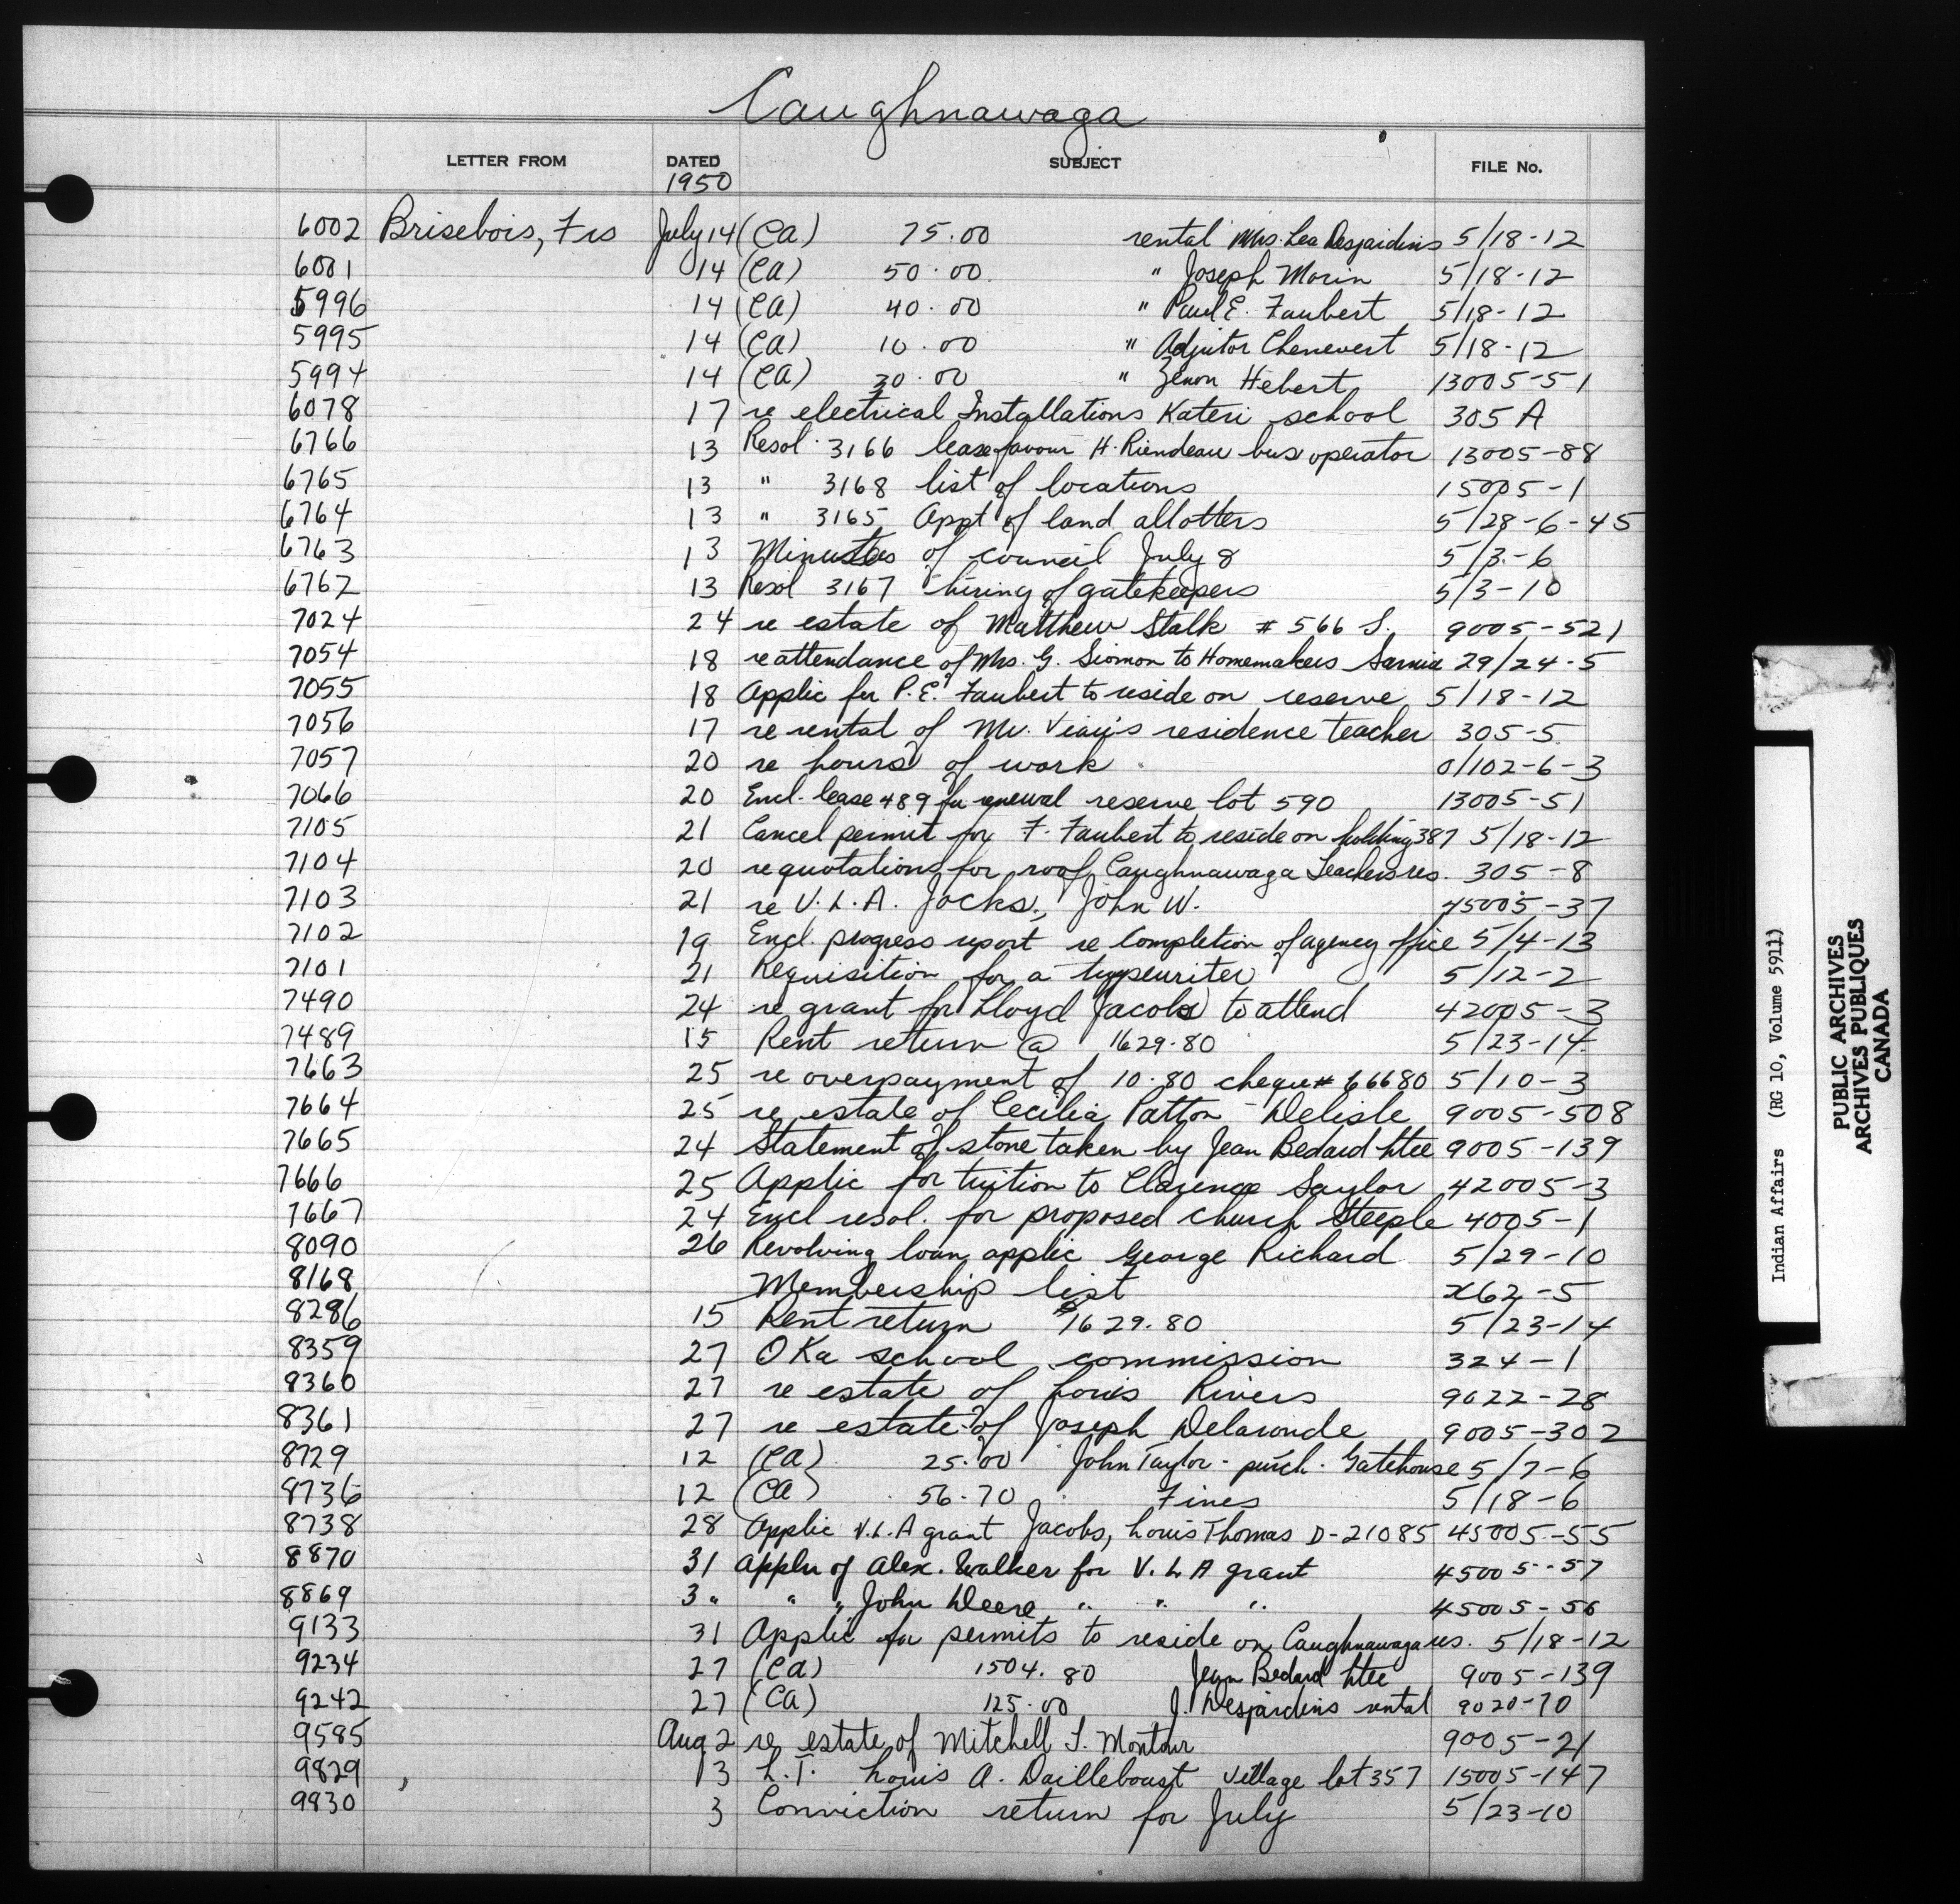 Caughnawaga
LETTER FROM DATED SUBJECT FILE No.
1950
6002 Brisebois, Frs July 14 (CA) 75.00 rental Mrs. Lea Desjardins 5/18-12
6001 14 (CA) 50.00 " Joseph Morin 5/18-12
5996 14 (CA) 40.00 " Paul E. Faubert 5/18-12
5995 14 (CA) 10.00 " Adjutor Chenevert 5/18-12
5994 14 (CA) 30.00 " Zenon Hebert 13005-51
6078 17 re electrical Installations Kateri school 305 A
6766 13 Resol. 3166 lease favour H. Riendeau bus operator 13005-88
6765 13 " 3168 list of locations 15005-1
6764 13 " 3165 Appt of land allotters 5/28-6-45
6763 13 Minutes of council July 8 5/3-6
6762 13 Resol 3167 hiring of gatekeepers 5/3-10
7024 24 re estate of Matthew Stalk # 566 S. 9005-521
7054 18 re attendance of Mrs. G. Siomon to Homemakers Sarnia 29/24-5
7055 18 Applic for P.E. Faubert to reside on reserve 5/18-12
7056 17 re rental of Mr. Viau's residence teacher 305-5
7057 20 re hours of work 0/102-6-3
7066 20 Encl. lease 489 for renewal reserve lot 590 13005-51
7105 21 Cancel permit for F. Faubert to reside on holding 387 5/18-12
7104 20 re quotations for roof Caughnawaga Teachers res. 305-8
7103 21 re V.L.A. Jocks, John W. 45005-37
7102 19 Encl. progress report re completion of agency office 5/4-13
7101 21 Requisition for a typewriter 5/12-2
7490 24 re grant for Lloyd Jacobs to attend 42005-3
7489 15 Rent return @ 1629.80 5/23-14
7663 25 re overpayment of 10.80 cheque # 66680 5/10-3
7664 25 re estate of Cecilia Patton - Delisle 9005-508
7665 24 Statement of stone taken by Jean Bedard Ltee 9005-139
7666 25 Applic for tuition to Clarence Saylor 42005-3
7667 24 Encl resol. for proposed church Steeple 4005-1
8090 26 Revolving loan applic George Richard 5/29-10
8168 Membership list x62-5
8286 15 Rent return $1629.80 5/23-14
8359 27 Oka school commission 324-1
8360 27 re estate of Louis Rivers 9022-28
8361 27 re estate of Joseph Delaronde 9005-302
8729 12 (CA) 25.00 John Taylor - purch. Gatehouse 5/7-6
8736 12 (CA) 56.70 Fines 5/18-6
8738 28 Applic V.L.A grant Jacobs, Louis Thomas D-21085 45005-55
8870 31 Appln of Alex. Walker for V.L.A grant 45005-57
8869 3 " " " John Deere " " " 45005-56
9133 31 Applic for permits to reside on Caughnawaga res. 5/18-12
9234 27 (CA) 1504.80 Jean Bedard Ltee 9005-139
9242 27 (CA) 125.00 J. Desjardins rental 9020-70
9585 Aug 2 re estate of Mitchell T. Montour 9005-21
9829 13 L.T. Louis A. Dailleboust Village lot 357 15005-147
9830 3 Conviction return for July 5/23-10
Indian Affairs (RG 10, Volume 5911)
PUBLIC ARCHIVES
ARCHIVES PUBLIQUES
CANADA